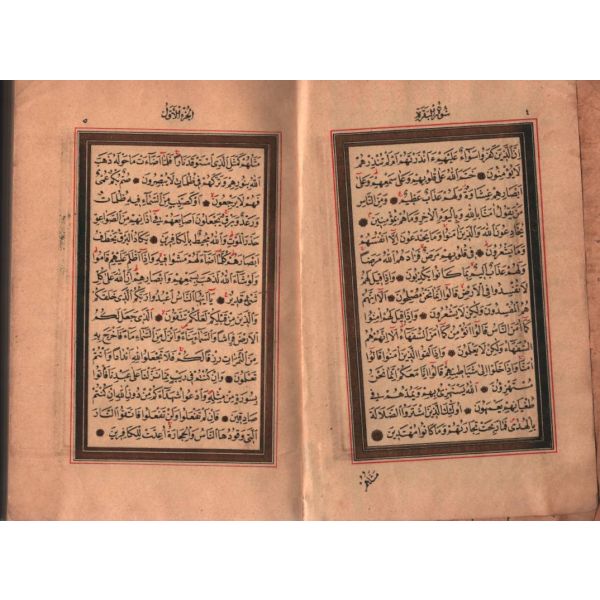 ٤
سورة البقرة
اِنَّ الَّذِينَ كَفَرُوا سَوَاءٌ عَلَيْهِمْ ءَاَنْذَرْتَهُمْ اَمْ لَمْ تُنْذِرْهُمْ
لَا يُؤْمِنُونَ خَتَمَ اللهُ عَلٰى قُلُوبِهِمْ وَعَلٰى سَمْعِهِمْ وَعَلٰى
اَبْصَارِهِمْ غِشَاوَةٌ وَلَهُمْ عَذَابٌ عَظِيمٌ وَمِنَ النَّاسِ
مَنْ يَقُولُ اٰمَنَّا بِاللهِ وَبِالْيَوْمِ الْاٰخِرِ وَمَا هُمْ بِمُؤْمِنِينَ
يُخَادِعُونَ اللهَ وَالَّذِينَ اٰمَنُوا وَمَا يَخْدَعُونَ اِلَّا اَنْفُسَهُمْ
وَمَا يَشْعُرُونَ فِي قُلُوبِهِمْ مَرَضٌ فَزَادَهُمُ اللهُ مَرَضًا
وَلَهُمْ عَذَابٌ اَلِيمٌ بِمَا كَانُوا يَكْذِبُونَ وَاِذَا قِيلَ لَهُمْ
لَا تُفْسِدُوا فِي الْاَرْضِ قَالُوا اِنَّمَا نَحْنُ مُصْلِحُونَ اَلَا اِنَّهُمْ
هُمُ الْمُفْسِدُونَ وَلٰكِنْ لَا يَشْعُرُونَ وَاِذَا قِيلَ لَهُمْ اٰمِنُوا
كَمَا اٰمَنَ النَّاسُ قَالُوا اَنُؤْمِنُ كَمَا اٰمَنَ السُّفَهَاءُ اَلَا اِنَّهُمْ هُمُ
السُّفَهَاءُ وَلٰكِنْ لَا يَعْلَمُونَ وَاِذَا لَقُوا الَّذِينَ اٰمَنُوا قَالُوا
اٰمَنَّا وَاِذَا خَلَوْا اِلٰى شَيَاطِينِهِمْ قَالُوا اِنَّا مَعَكُمْ اِنَّمَا نَحْنُ
مُسْتَهْزِؤُنَ اَللهُ يَسْتَهْزِئُ بِهِمْ وَيَمُدُّهُمْ فِي
طُغْيَانِهِمْ يَعْمَهُونَ اُولٰئِكَ الَّذِينَ اشْتَرَوُا الضَّلَالَةَ
بِالْهُدٰى فَمَا رَبِحَتْ تِجَارَتُهُمْ وَمَا كَانُوا مُهْتَدِينَ
مَثَلُهُمْ
الجزء الاول
٥
مَثَلُهُمْ كَمَثَلِ الَّذِي اسْتَوْقَدَ نَارًا فَلَمَّا اَضَاءَتْ مَا حَوْلَهُ ذَهَبَ
اللهُ بِنُورِهِمْ وَتَرَكَهُمْ فِي ظُلُمَاتٍ لَا يُبْصِرُونَ صُمٌّ بُكْمٌ عُمْيٌ
فَهُمْ لَا يَرْجِعُونَ اَوْ كَصَيِّبٍ مِنَ السَّمَاءِ فِيهِ ظُلُمَاتٌ
وَرَعْدٌ وَبَرْقٌ يَجْعَلُونَ اَصَابِعَهُمْ فِي اٰذَانِهِمْ مِنَ الصَّوَاعِقِ
حَذَرَ الْمَوْتِ وَاللهُ مُحِيطٌ بِالْكَافِرِينَ يَكَادُ الْبَرْقُ يَخْطَفُ
اَبْصَارَهُمْ كُلَّمَا اَضَاءَ لَهُمْ مَشَوْا فِيهِ وَاِذَا اَظْلَمَ عَلَيْهِمْ قَامُوا
وَلَوْ شَاءَ اللهُ لَذَهَبَ بِسَمْعِهِمْ وَاَبْصَارِهِمْ اِنَّ اللهَ عَلٰى كُلِّ
شَيْءٍ قَدِيرٌ يَا اَيُّهَا النَّاسُ اعْبُدُوا رَبَّكُمُ الَّذِي خَلَقَكُمْ
وَالَّذِينَ مِنْ قَبْلِكُمْ لَعَلَّكُمْ تَتَّقُونَ اَلَّذِي جَعَلَ لَكُمُ
الْاَرْضَ فِرَاشًا وَالسَّمَاءَ بِنَاءً وَاَنْزَلَ مِنَ السَّمَاءِ مَاءً فَاَخْرَجَ بِهِ
مِنَ الثَّمَرَاتِ رِزْقًا لَكُمْ فَلَا تَجْعَلُوا لِلّٰهِ اَنْدَادًا وَاَنْتُمْ
تَعْلَمُونَ وَاِنْ كُنْتُمْ فِي رَيْبٍ مِمَّا نَزَّلْنَا عَلٰى عَبْدِنَا فَأْتُوا
بِسُورَةٍ مِنْ مِثْلِهِ وَادْعُوا شُهَدَاءَكُمْ مِنْ دُونِ اللهِ اِنْ كُنْتُمْ
صَادِقِينَ فَاِنْ لَمْ تَفْعَلُوا وَلَنْ تَفْعَلُوا فَاتَّقُوا النَّارَ
الَّتِي وَقُودُهَا النَّاسُ وَالْحِجَارَةُ اُعِدَّتْ لِلْكَافِرِينَ